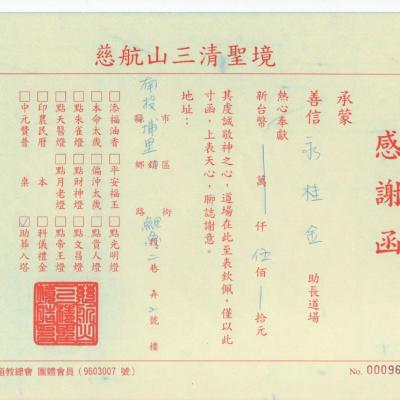 慈航山三清聖境
感謝函
承蒙
善信 永桂金 助長道場
熱心奉獻
新台幣 萬 仟 伍佰 拾元
其虔誠敬神之心，道場在此至表欽佩，僅以此
寸函，上表天心，聊誌謝意。
地址：
南投 縣 市
埔里 鄉 鎮 區
路 街
巷 弄 號 樓
□添福油香 □平安福玉 □點光明燈
□本命太歲 □偏沖太歲 □點貴人燈
□點朱雀燈 □點財神燈 □點文昌燈
□點天醫燈 □點月老燈 □點帝王燈
□印農民曆 本 □科儀禮金
□中元贊普 桌 ☑助葬入塔
道教總會 團體會員（9603007 號）
No. 00096